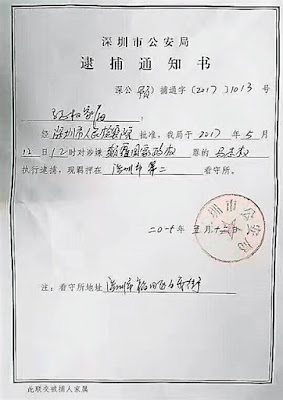 深圳市公安局
逮捕通知书
深公（ ）捕通字〔2017〕1013号
家属：
经深圳市人民检察院批准，我局于2017年5月
12日12时对涉嫌颠覆国家政权罪的
执行逮捕，现羁押在深圳市第二看守所。
深圳市公安局
注：看守所地址深圳市
此联交被捕人家属